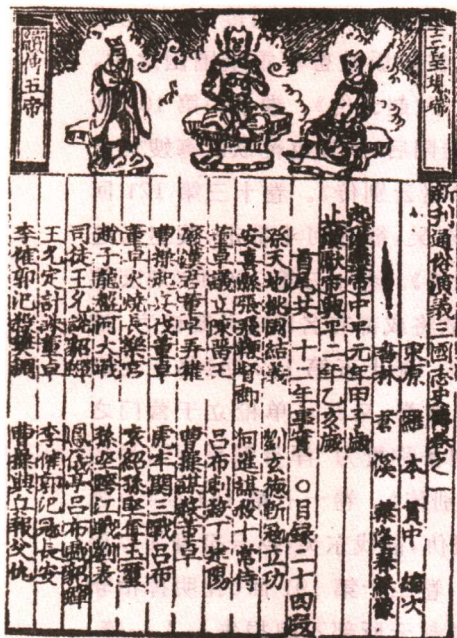 新刊通俗演義三國志史傳卷之一
東原 羅 本 貫中 編次
書林 君溪 葉逢春綵像
起漢靈帝中平元年甲子歲
止漢獻帝興平二年乙亥歲
首尾廿一十二年事實 〇目錄二十四段
祭天地桃園結義 劉玄德斬寇立功
安喜縣張飛鞭督郵 何進謀殺十常侍
董卓議立陳留王 呂布刺殺丁建陽
廢漢君董卓弄權 曹操謀殺董卓
曹操起兵伐董卓 虎牢關三戰呂布
董卓火燒長樂宮 袁紹孫堅奪玉璽
趙子龍盤河大戰 孫堅跨江戰劉表
司徒王允說貂蟬 鳳儀亭呂布戲貂蟬
王允定計誅董卓 李傕郭汜寇長安
李傕郭汜殺樊稠 曹操興兵報父仇
五帝